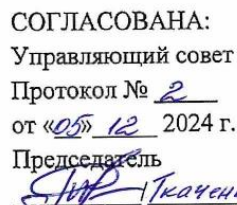 СОГЛАСОВАНА:
Управляющий совет
Протокол № 2
от «05» 12 2024 г.
Председатель